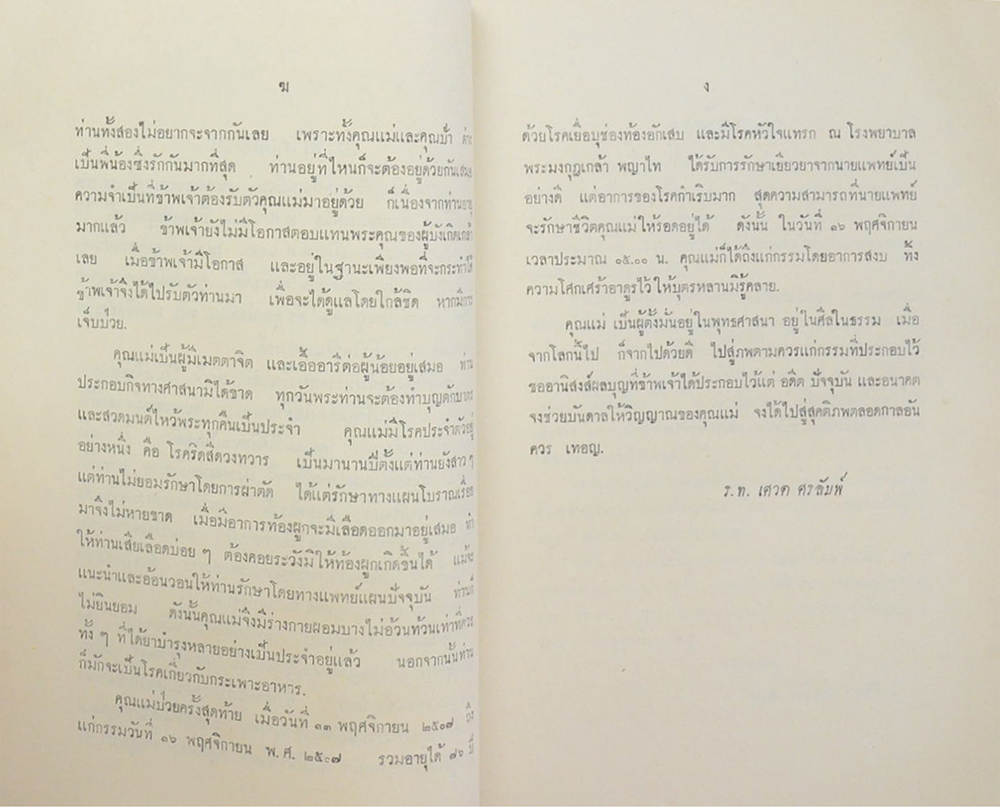 ฆ
ท่านทั้งสองไม่อยากจะจากกันเลย เพราะทั้งคุณแม่และคุณป้า ต่าง
เป็นพี่น้องซึ่งรักกันมากที่สุด ท่านอยู่ที่ไหนก็จะต้องอยู่ด้วยกันเสมอ
ความจำเป็นที่ข้าพเจ้าต้องรับตัวคุณแม่มาอยู่ด้วย ก็เนื่องจากท่านอายุ
มากแล้ว ข้าพเจ้ายังไม่มีโอกาสตอบแทนพระคุณของผู้บังเกิดเกล้า
เลย เมื่อข้าพเจ้ามีโอกาส และอยู่ในฐานะเพียงพอที่จะกระทำได้
ข้าพเจ้าจึงได้ไปรับตัวท่านมา เพื่อจะได้ดูแลโดยใกล้ชิด หากมีการ
เจ็บป่วย.
คุณแม่เป็นผู้มีเมตตาจิต และเอื้ออารีต่อผู้น้อยอยู่เสมอ ท่าน
ประกอบกิจทางศาสนามิได้ขาด ทุกวันพระท่านจะต้องทำบุญตักบาตร
และสวดมนต์ไหว้พระทุกคืนเป็นประจำ คุณแม่มีโรคประจำตัวอยู่
อย่างหนึ่ง คือ โรคริดสีดวงทวาร เป็นมานานปีตั้งแต่ท่านยังสาว ๆ
แต่ท่านไม่ยอมรักษาโดยการผ่าตัด ได้แต่รักษาทางแผนโบราณเรื่อย
มาจึงไม่หายขาด เมื่อมีอาการท้องผูกจะมีเลือดออกมาอยู่เสมอ ทำ
ให้ท่านเสียเลือดบ่อย ๆ ต้องคอยระวังมิให้ท้องผูกเกิดขึ้นได้ แม้จะ
แนะนำและอ้อนวอนให้ท่านรักษาโดยทางแพทย์แผนปัจจุบัน ท่านก็
ไม่ยินยอม ดังนั้นคุณแม่จึงมีร่างกายผอมบางไม่อ้วนท้วนเท่าที่ควร
ทั้ง ๆ ที่ได้ยาบำรุงหลายอย่างเป็นประจำอยู่แล้ว นอกจากนั้นท่าน
ก็มักจะเป็นโรคเกี่ยวกับกระเพาะอาหาร.
คุณแม่ป่วยครั้งสุดท้าย เมื่อวันที่ ๑๓ พฤศจิกายน ๒๕๐๗ ถึง
แก่กรรมวันที่ ๑๖ พฤศจิกายน พ. ศ. ๒๕๐๗ รวมอายุได้ ๗๖ ปี
ง
ด้วยโรคเยื่อบุช่องท้องอักเสบ และมีโรคหัวใจแทรก ณ โรงพยาบาล
พระมงกุฎเกล้า พญาไท ได้รับการรักษาเยียวยาจากนายแพทย์เป็น
อย่างดี แต่อาการของโรคกำเริบมาก สุดความสามารถที่นายแพทย์
จะรักษาชีวิตคุณแม่ให้รอดอยู่ได้ ดังนั้น ในวันที่ ๑๖ พฤศจิกายน
เวลาประมาณ ๑๕.๐๐ น. คุณแม่ก็ได้ถึงแก่กรรมโดยอาการสงบ ทิ้ง
ความโศกเศร้าอาดูรไว้ ให้บุตรหลานมิรู้คลาย.
คุณแม่ เป็นผู้ตั้งมั่นอยู่ในพุทธศาสนา อยู่ในศีลในธรรม เมื่อ
จากโลกนี้ไป ก็จากไปด้วยดี ไปสู่ภพตามควรแก่กรรมที่ประกอบไว้
ขออานิสงส์ผลบุญที่ข้าพเจ้าได้ประกอบไว้แต่ อดีต ปัจจุบัน และอนาคต
จงช่วยบันดาลให้วิญญาณของคุณแม่ จงได้ไปสู่สุคติภพตลอดกาลอัน
ควร เทอญ.
ร. ท. เศวต ศรลัมพ์